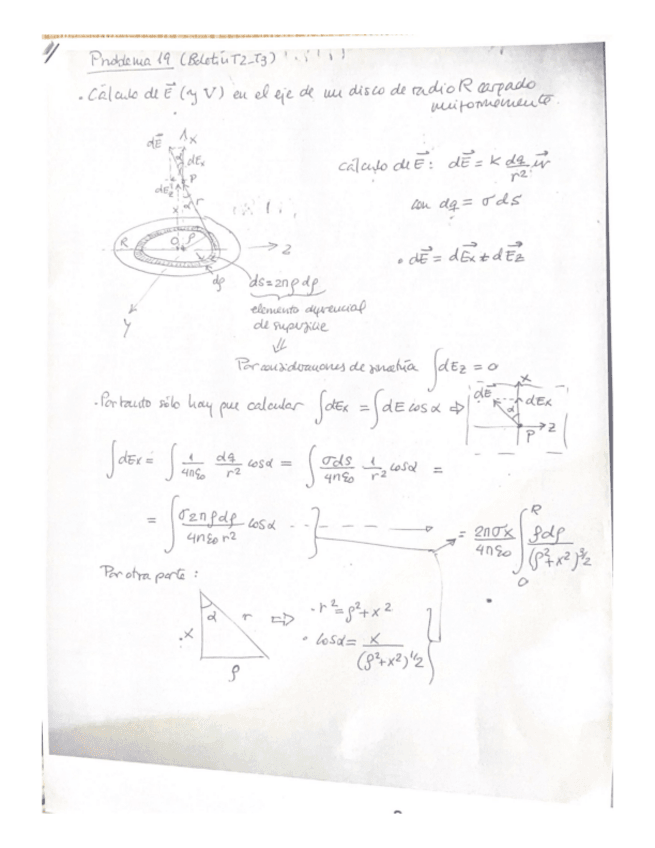 1/
Problema 19 (Boletín T2-T3)
• Cálculo de E⃗ (y V) en el eje de un disco de radio R cargado
uniformemente.
dE⃗ X
α dEx
dEz P
α r
x
R O ρ Z
dρ
Y
dS=2πρdρ
elemento diferencial
de superficie
⇓
cálculo de E⃗: dE⃗ = K dq/r² u⃗r
con dq = σ dS
• dE⃗ = dE⃗x + dE⃗z
Por consideraciones de simetría ∫dEz = 0
• Por tanto sólo hay que calcular ∫dEx = ∫dE cosα ⇒
X
dE⃗ dEx
α
P Z
∫dEx = ∫ 1/4πε₀ dq/r² cosα = ∫ σdS/4πε₀ 1/r² cosα =
= ∫ σ2πρdρ/4πε₀r² cosα → = 2πσx/4πε₀ ∫₀ᴿ ρdρ/(ρ²+x²)^3/2
Por otra parte:
x α r ρ
⇒ • r² = ρ²+x²
• cosα = x/(ρ²+x²)^1/2